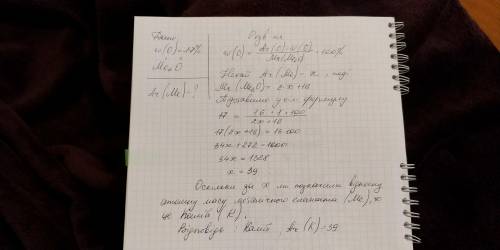 Дано:
w(O)=17%
Me₂O
Ar(Me)-?
w(O) = Ar(O)·n(O) / Mr(Me₂O) · 100%
Нехай Ar(Me) - x, тоді
Mr(Me₂O) = 2·x+16
Підставимо у формулу
17 = 16·1·100 / 2x+16
17(2x+16)=1600
34x+272=1600
34x = 1328
x = 39
Оскільки за X ми позначили відносну
атомну масу невідомого елемента (Me), то
це Калій (K).
Відповідь: Калій, Ar(K)=39